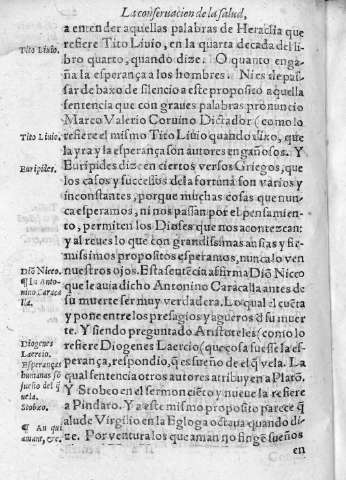 La conseruacion de la salud,
a entender aquellas palabras de Heraclia que
refiere Tito Liuio, en la quarta decada del li-
bro quarto, quando dize. O quanto enga-
ña la esperança a los hombres. Ni es de pas-
sar debaxo de silencio a este proposito aquella
sentencia que con graues palabras pronuncio
Marco Valerio Coruino Dictador (como lo
refiere el mismo Tito Liuio quando dixo, que
la yra y la esperança son autores engañosos. Y
Euripides dize en ciertos versos Griegos, que
los casos y successos de la fortuna son varios y
inconstantes, porque muchas cosas que nun-
ca esperamos, ni nos passan por el pensamien-
to, permiten los Dioses que nos acontezcan:
y al reues lo que con grandissimas ansias y fir-
missimos propositos esperamos, nunca lo ven
nuestros ojos. Esta sentẽcia afirma Diõ Niceo
que le auia dicho Antonino Caracalla antes de
su muerte ser muy verdadera. Lo qual el cuẽta
y pone entre los presagios y agueros d̃ su muer
te. Y siendo preguntado Aristoteles (como lo
refiere Diogenes Laercio (que cosa fuesse la es-
perança, respondio, q̃ es sueño de el q̃ vela. La
qual sentencia otros autores atribuyen a Platõ.
Y Stobeo en el sermon ciẽto y nueue la refiere
a Pindaro. Y a este mismo proposito parece q̃
alude Virgilio en la Egloga octaua quando di-
ze. Por ventura los que aman no fingẽ sueños
en
Tito Liuio.
Tito Liuio.
Euripides.
Diõ Niceo.
¶ La Anto-
nino Caraca
lla.
Diogenes
Laercio.
Esperanças
humanas sõ
sueño del q̃
vela.
Stobeo.
¶ An qui
amant, &c.